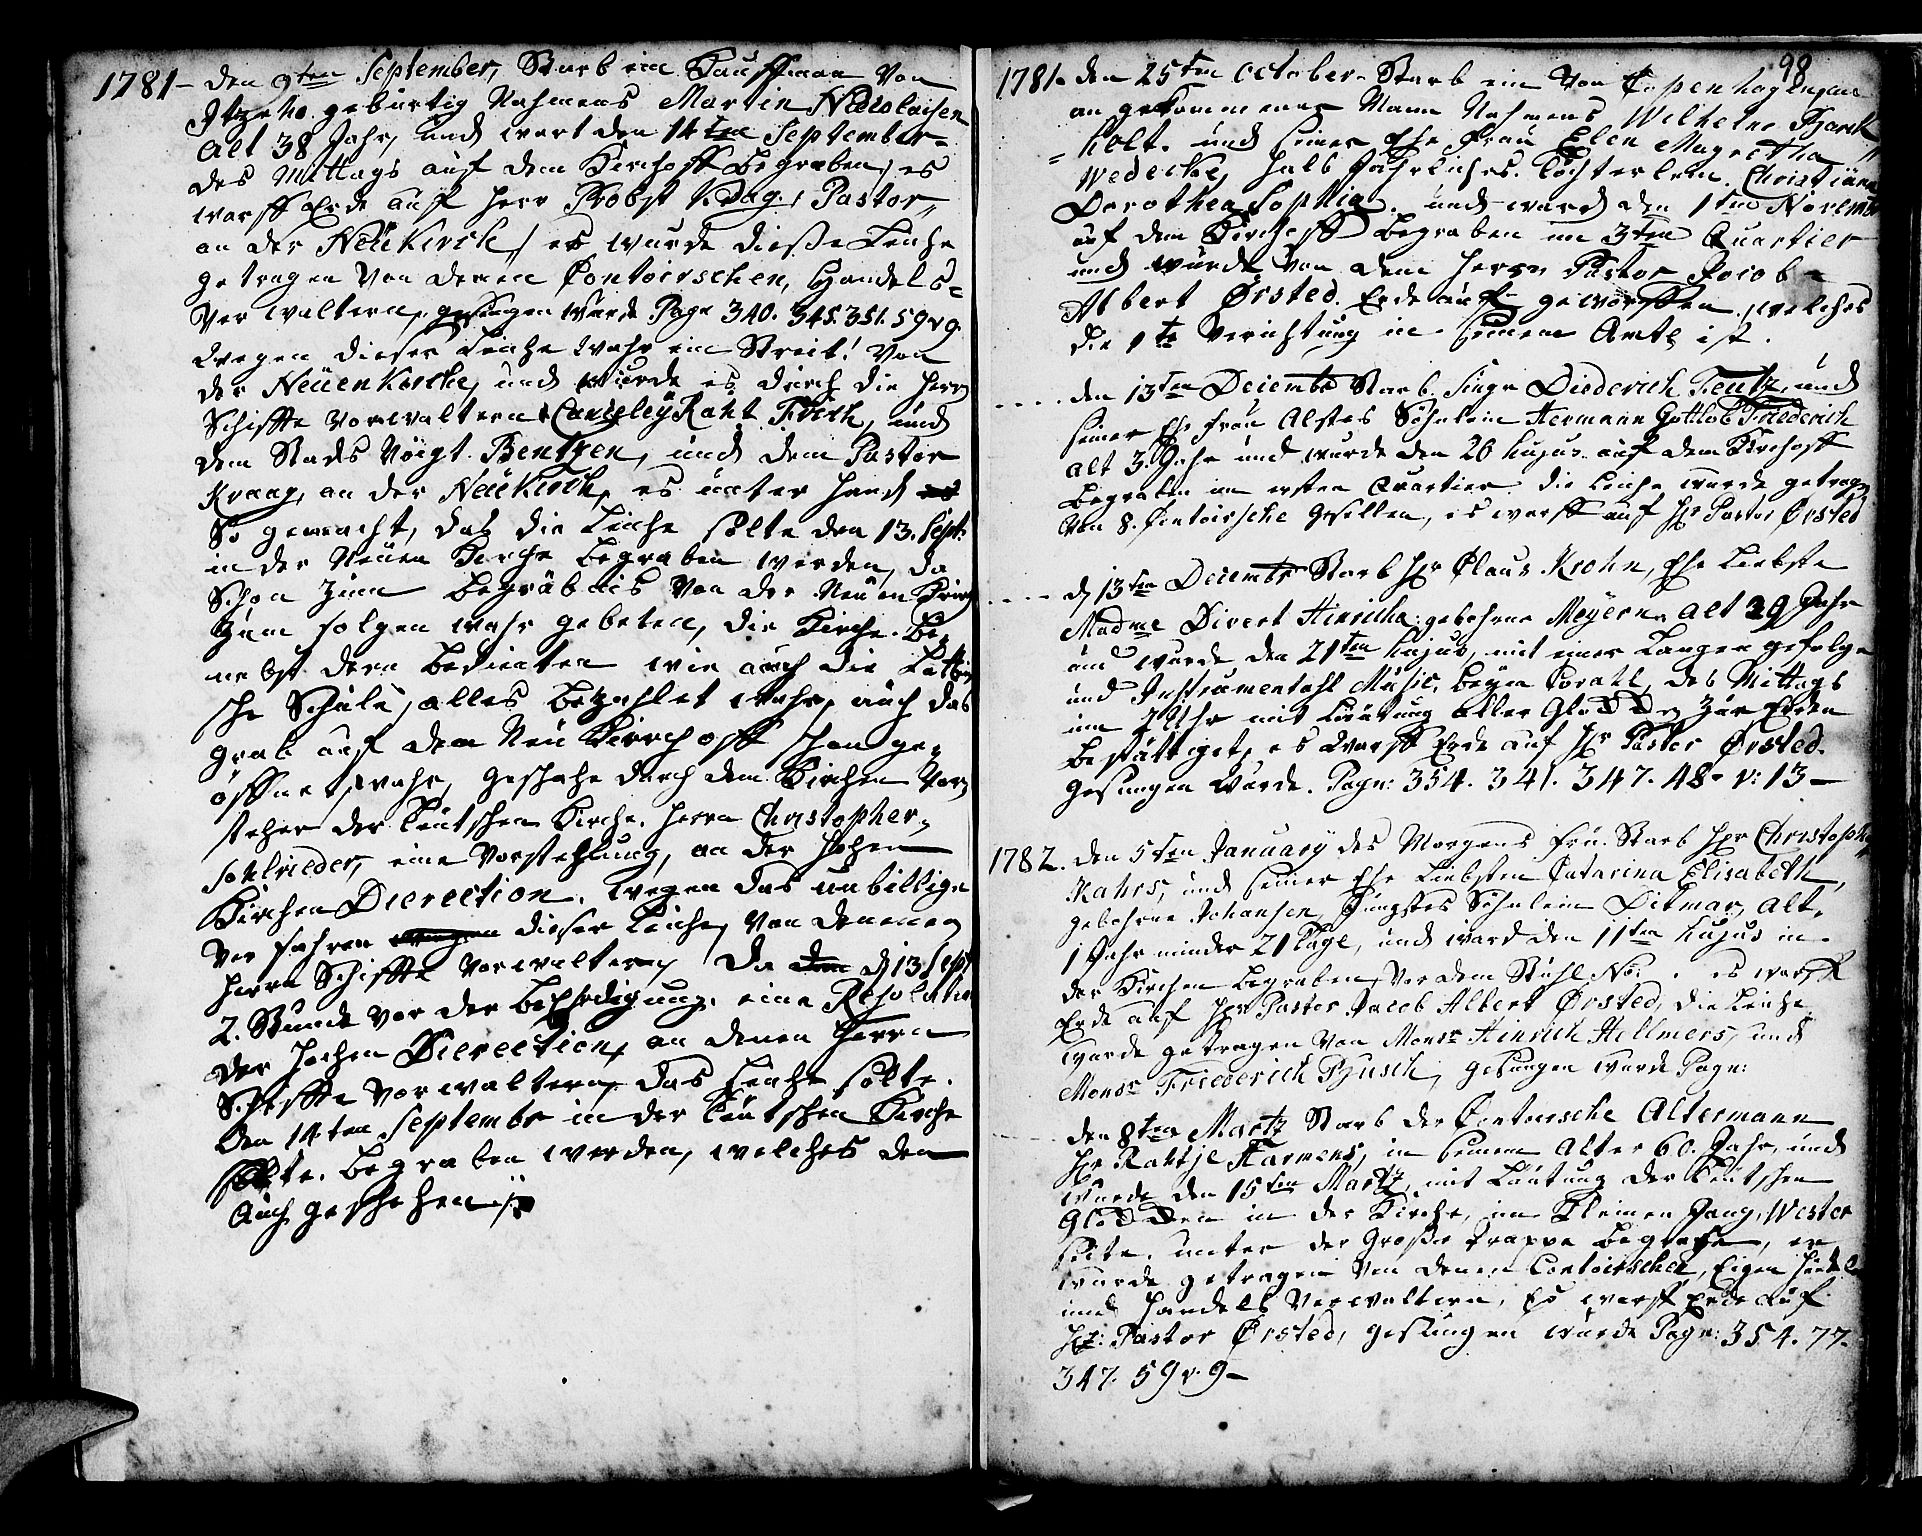 1781 - den 9ten September, Starb ein Kauffman Von
Itzeho gebürtig Nahmens Martin Nicolaisen
Alt 38 Jahr, und wart den 14ten September
des Mittags auf dem Kirchoff Begraben, es
warff Erde auf Herr Probst V. Dag, Pastor
an der Neükirch, es wurde dieße Leiche
getragen Von denen Contoirschen, Handels-
Verwaltern, gesungen wurde Pagn 340. 345. 351. 59 v 9.
Wegen dieser Leiche wahr ein Streit! Von
der Neüen Kirche, und wurde es durch die Herrn
Schiffte Vorwaltern Canceleÿ Raht Frich, und
dem Stads Vöigt Bentzen, und dem Pastor
Kraag, an der Neükirch, es unter Hand
So gemacht, das die Leiche solte den 13. Sept:
in der Neüen Kirche begraben werden, da
Schon Zum Begräbnis Von der Neüen Kirch
Zum folgen wahr gebeten, die Kirche Be-
nebst dem bedienten wie auch die Lattein
sche Schule, alles bezahlet wahr, auch das
grab auf dem Neü Kirchoff schon ge-
öffnet wahr, geschahe durch dem Kirchen Vor-
steher der teütschen Kirche, Herrn Christopher
Sohlrieder, eine Vorstehlung, an der Hohen
Kirchen Dierection, wegen das unbillige
Verfahren dieser Leiche, Von denenen
Herrn Schiffte Vorwaltern, da d 13 Sept
2. Stunde vor der Beerdigung, eine Resolution
der Hohen Dierection, an denen Herrn
Schiffte Vorwaltern, das Leiche solte
den 14ten Septembr in der teütschen Kirche
solte begraben werden, welches den
Auch geschehen

98
1781. den 25ten October Starb ein Von Copenhagen
an gekommener Mann Nahmens Wilhelm
holt. und seiner Ehe Frau Elen Magretha
Wedecke, halb Jährliches Töchterlein Christiana
Dorothea Sophia. und ward den 1ten Novemb
auf dem Kirchoff Begraben im 3ten Quartier
und wurde von dem Herrn Pastor Jacob
Albert Ørsted. Erde auf geworffen, welches
die 1te Verichtung in seinem Amte ist.
den 13ten Decembr Starb Singr Diederich Teutz, und
seiner Ehe Frau Alstes Söhnlein Hermann Gottlob Friederich
alt 3. Jahr und wurde den 20 hujus auf dem Kirchoff
Begraben im ersten Quartier die Leiche wurde getragn
Von 8. Contoirsche Gesellen, es warff auf Hr Pastor Ørsted
d 13ten Decembr Starb Hr Claus Krohn, Ehe Liebste
Madme Divert Hinricha gebohrne Meyern, alt 29 Jahr
und wurde den 21ten hujus, mit einer Langen gefolge
und Instrumentahl Music, beÿm Corahl, des Mittags
um Uhr mit Läutung aller Glocken zur Erden
bestättiget, es warff Erde auf Hr Pastor Ørsted.
gesungen wurde. Pagn: 354. 341. 347. 48 v: 13 -
1782. den 5ten January des Morgens frü. Starb Hr Christopher
Kahrs, und seiner Ehe Liebsten Catarina Elisabeth
gebohrne Johansen, Jüngstes Söhnlein Ditmar, alt
1 Jahr minder 21 Tage, und ward den 11ten hujus in
der Kirchen begraben, Vor dem Stuhl No: . es warff
Erde auf Hr Pastor Jacob Albert Ørsted, die Leiche
wurde getragen Von Monsr Hinrich Hellmers, und
Monsr Friederich Busch, gesungen wurde Pagn:
den 8ten Martz Starb der Contoirsche Altermann
Hr Rahtje Harmens, in seinem Alter 60. Jahr, und
wurde den 15ten Martz, mit Läutung der teütschen
Glocken in der Kirche, im Kleinen Gang, Wester
seite. unter der Große trappe begraben, er
wurde getragen Von denen Contoirschen, Eigen Handels
und Handels Verwaltern, Es warff Erde auf
Hr: Pastor Ørsted, gesungen wurde Pagn: 354. 77.
347. 59 v. 9 -